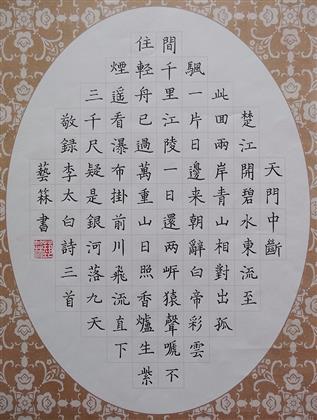 天門中斷
楚江開碧水東流至
此回兩岸青山相對出孤
颿一片日邊来朝辭白帝彩雲
間千里江陵一日還两㟁猿聲嗁不
住輕舟已過萬重山日照香爐生紫
煙遥看瀑布掛前川飛流直下
三千尺疑是銀河落九天
敬録李太白詩三首
藝箖書